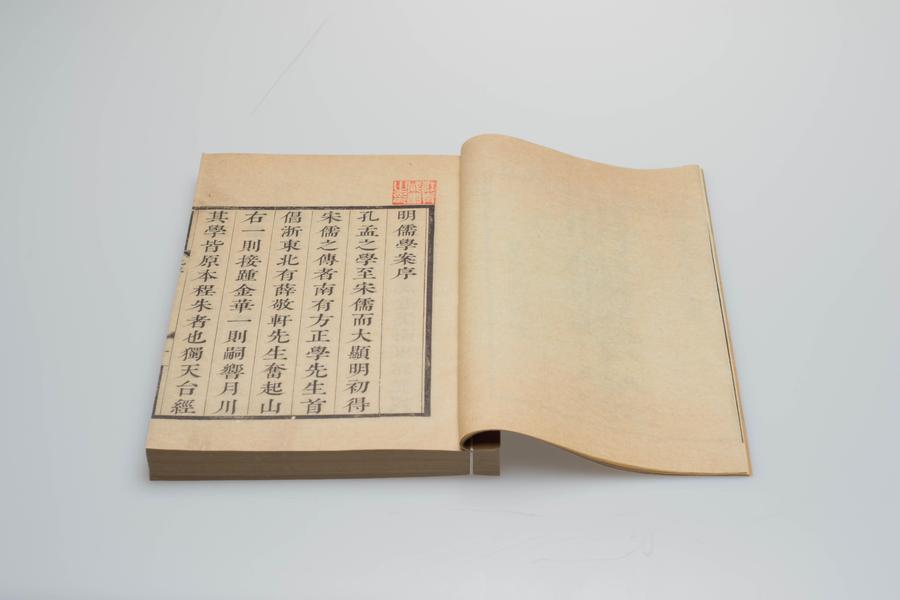 明儒學案序
孔孟之學至宋儒而大顯明初得
宋儒之傳者南有方正學先生首
倡浙東北有薛敬軒先生奮起山
右一則接踵金華一則嗣響月川
其學皆原本程朱者也獨天台經